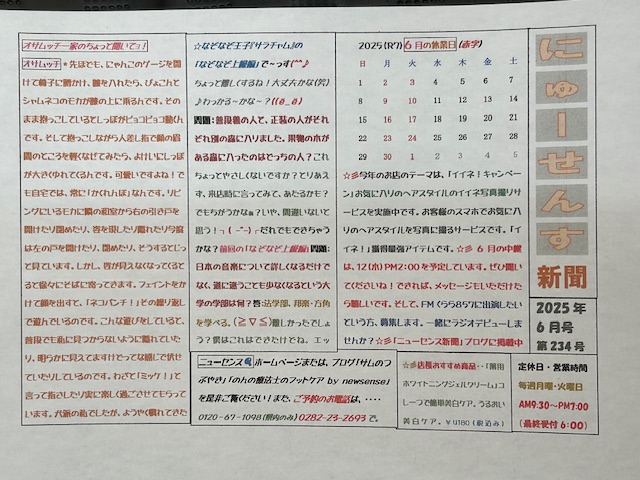 オサムッチ一家のちょっと聞いてョ!
オサムッチ*先ほども、にゃんこのゲージを開
けて椅子に腰かけ、膝を入れたら、ぴょこんと
シャムネコのモカが膝の上に乗るんです。その
まま抱っこしているとしっぽがピョコピョコ動くん
です。そして抱っこしながら人差し指で額の眉
間のところを軽くなぜてみたら、よけいにしっぽ
が大きくゆれてくるんです。可愛いですよね!で
も自宅では、常に「かくれんぼ」なんです。リビ
ングにいるモカに隣の和室から右の引き戸を
開けたり閉めたり、音を訳したり離れたり今度
は左の戸を開けたり、閉めたり、そうするとじっ
と見ています。しかし、音が見えなくなってくる
と徐々にそばに寄ってきます。フェイントをかい
て顔を出すて、「ネコパンチ!」その繰り返し
で遊んでいるのです。こんな遊びをしていると、
普段でも私に見つからないように隠れていた
り、明らかに見えてますけどってな感じで伏せ
ていたりしているのです。わざと「ミッケ!」と言
って指さしたり実に楽しく過ごさせてもらって
います。犬派の私でしたが、ようやく慣れてきた
☆なぞなぞ王子『サラチャム』の
「なぞなぞ上級編」で~っす(^^♪
ちょっと難しすぎるね!大丈夫かな(笑)
♪わっかるっかな~?((@_@)
問題:普段着の人と、正装の人がそれ
ぞれ別の島に入りました。果物の木が
ある島に入ったのはどっちの人?これ
ちょっとやさしくないですか?とりあえ
ず、来店時に言ってみて、あたるかも?
でもちがうかなぁ?いや、間違いないて
思う!┐(-｡-)┌だれでもできちゃう
かな?前回の「なぞなぞ上級編」問題:
日本の音楽について詳しくなるだけで
なく、道に迷うことも少なくなるという大
学の学部は何?答:法学部、邦楽・方角
を学べる、(≧∇≦)難しかったでしょ
う?僕はこれはできたけどね。エッ
2025(R7)6月の休業日(赤字)
日 月 火 水 木 金 土
1 2 3 4 5 6 7
8 9 10 11 12 13 14
15 16 17 18 19 20 21
22 23 24 25 26 27 28
29 30 1 2 3 4 5
☆彡今年のお店のテーマは、「イイネ!キャンペー
ン」お気に入りのヘアスタイルのイイネ写真撮りサ
ービスを実施中です。お客様のスマホでお気に入
りのヘアスタイルを写真に撮るサービスです。「イ
イネ!」獲得最強アイテムです。☆彡 6月の中継
は、12(木)PM2:00を予定しています。ぜひ聞い
てくださいね!できれば、メッセージもいただけた
ら嬉しいです。そして、FMくらら857に出演したい
という方、募集します。一緒にラジオデビューしま
せんか?☆彡「ニューセンス新聞」ブログに掲載中
ニューセンス🔍ホームページまたは、ブログ「サムのつ
ぶやき」「のんの療法士のフットケア by newsense」
を是非ご覧ください!また、ご予約のお電話は、‥‥
0120-67-1098(県内のみ)0282-23-2693で。
☆彡店種おすすめ商品‥「薬用
ホワイトニングジェルクリーム」コ
レ一つで簡単美白ケア。うるおい
美白ケア。¥4180(税込み)
にゅーせんす
新聞
2025年
6月号
第234号
定休日・営業時間
毎週月曜・火曜日
AM9:30~PM7:00
(最終受付 6:00)